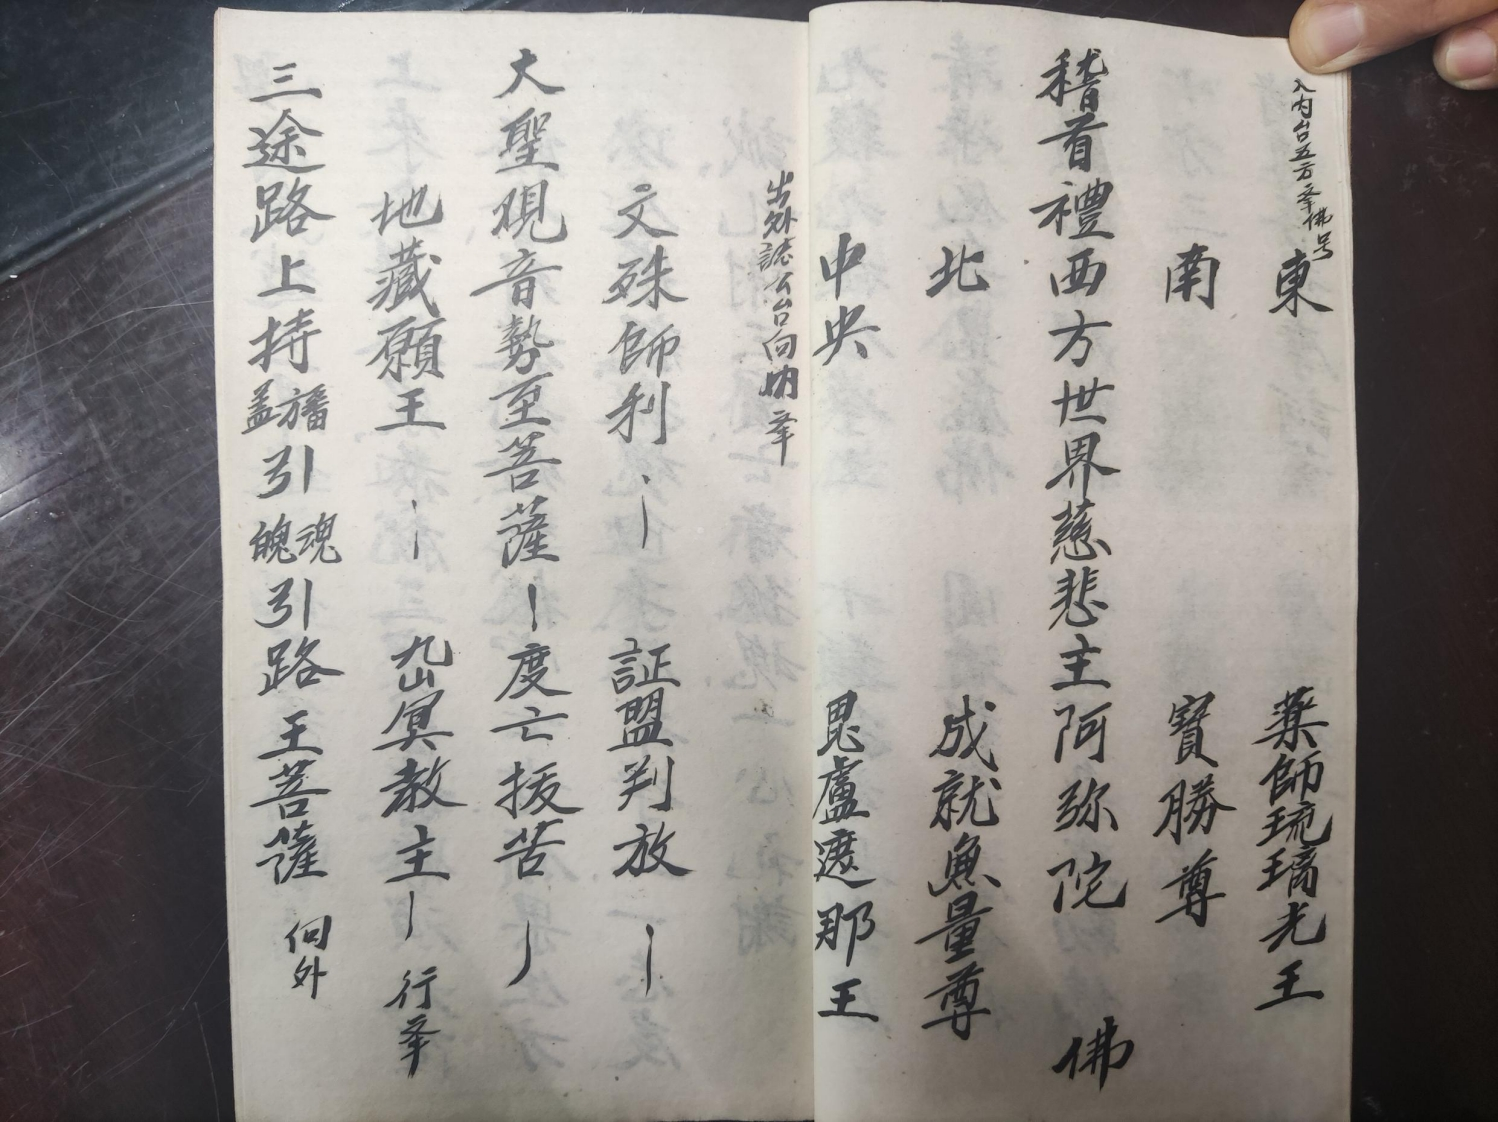 入内台五方奉佛号
東 藥師琉璃光王
南 寳勝尊
稽首禮西方世界慈悲主阿弥陀 佛
北 成就無量尊
中央 毘盧遮那王
出外誌公台向内奉
文殊師利 〡 証盟判放 〡
大聖观音勢至菩薩〡度亡拔苦〡
地藏願王〡 冥教主〡 行奉
三途路上持
旛
盖
引
魂
魄
引路王菩薩 向外